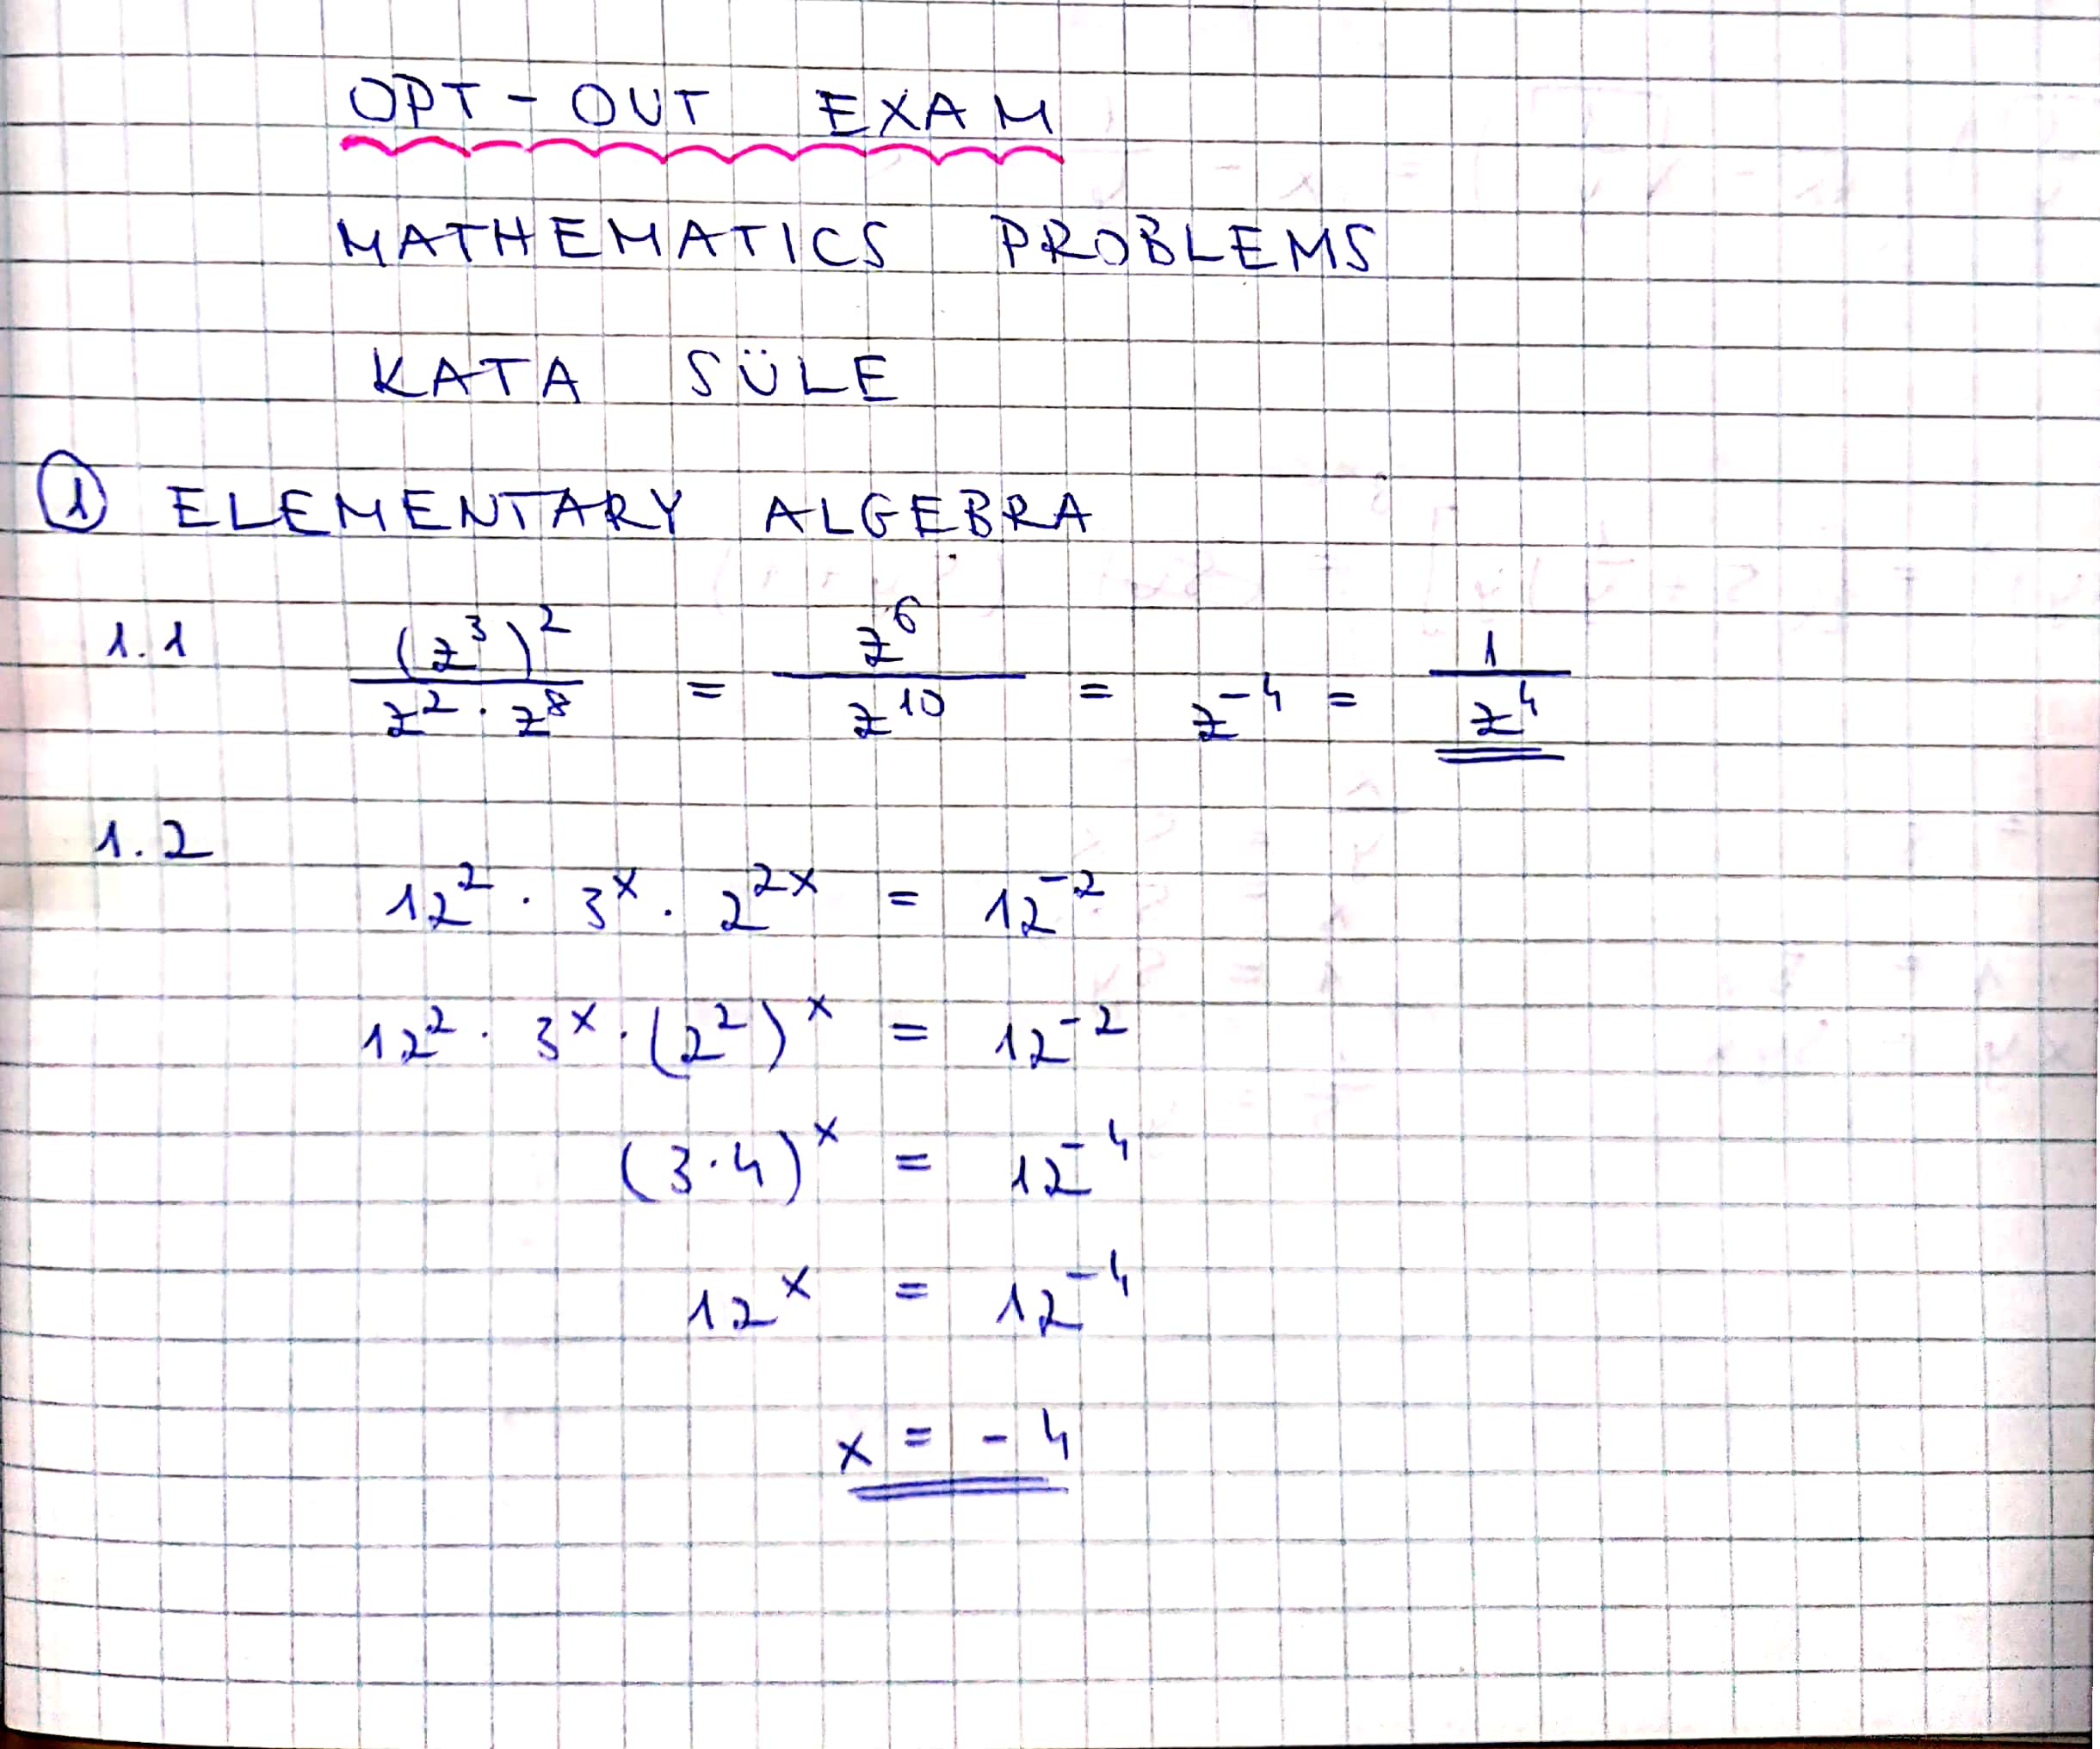 OPT-OUT EXAM
MATHEMATICS PROBLEMS
KATA SÜLE
① ELEMENTARY ALGEBRA
1.1 (z³)² / (z² · z⁸) = z⁶ / z¹⁰ = z⁻⁴ = 1 / z⁴
1.2
12² · 3ˣ · 2²ˣ = 12⁻²
12² · 3ˣ · (2²)ˣ = 12⁻²
(3·4)ˣ = 12⁻⁴
12ˣ = 12⁻⁴
x = -4